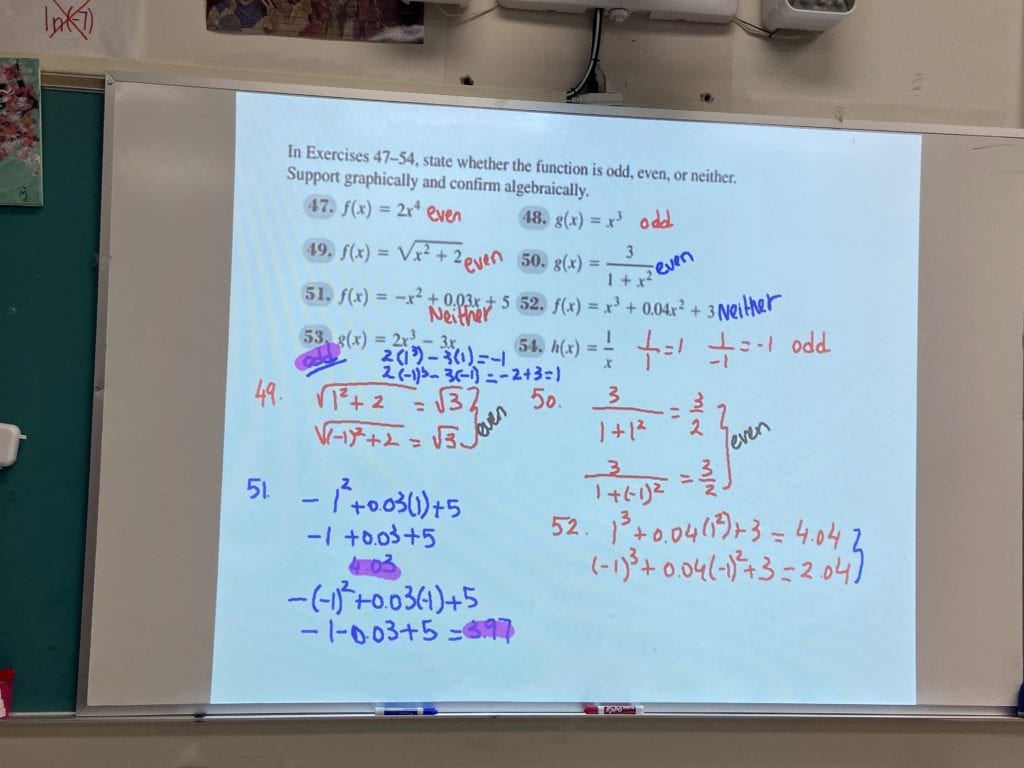 ln(-7)
In Exercises 47–54, state whether the function is odd, even, or neither.
Support graphically and confirm algebraically.
47. f(x) = 2x⁴ even
48. g(x) = x³ odd
49. f(x) = √(x² + 2) even
50. g(x) = 3/(1 + x²) even
51. f(x) = −x² + 0.03x + 5 Neither
52. f(x) = x³ + 0.04x² + 3 Neither
53. g(x) = 2x³ − 3x odd
2(1³) - 3(1) = -1
2(-1)³ - 3(-1) = -2+3=1
54. h(x) = 1/x 1/1 = 1 1/-1 = -1 odd
49. √(1² + 2) = √3
√((-1)² + 2) = √3 } even
50. 3/(1+1²) = 3/2
3/(1+(-1)²) = 3/2 } even
51. - 1² +0.03(1)+5
-1 +0.03+5
4.03
-(-1)² +0.03(-1)+5
-1-0.03+5 = 3.97
52. 1³ + 0.04(1²) + 3 = 4.04
(-1)³ + 0.04(-1)² + 3 = 2.04 }